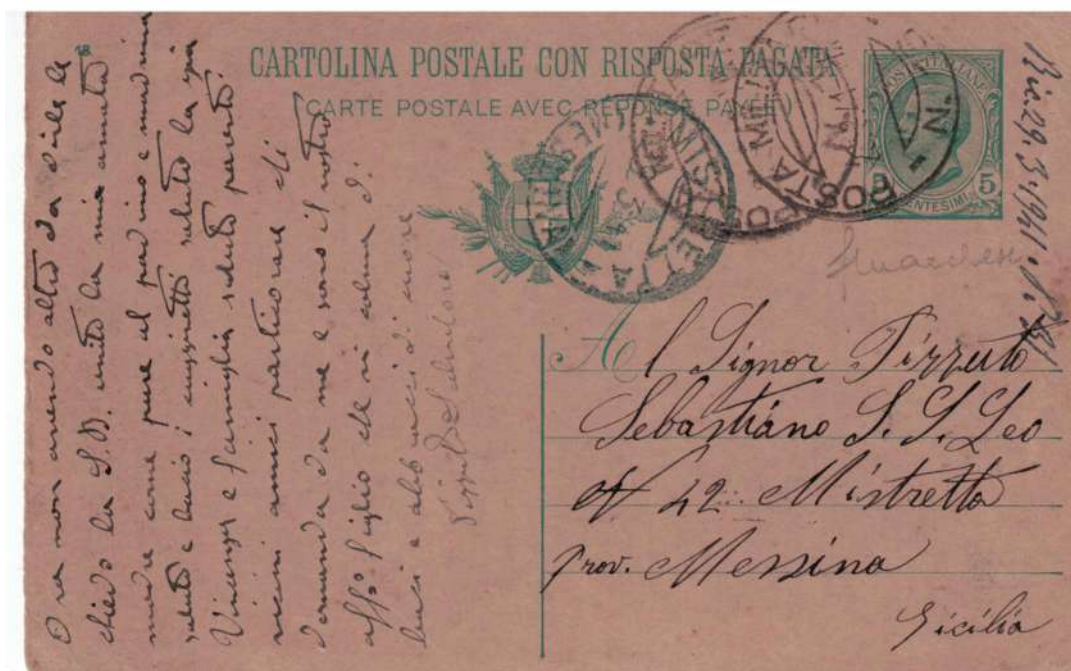 18
CARTOLINA POSTALE CON RISPOSTA PAGATA
(CARTE POSTALE AVEC RÉPONSE PAYÉE)
POSTE ITALIANE
5 CENTESIMI 5
POSTA
MISTRETTA
(MESSINA)
Al Signor
Sebastiano S. S. Leo
N 42 Mistretta
prov. Messina
Sicilia
O ra non avendo altro da dirle le
chiedo la S. B. unito la mia amata
madre come pure al padrino e madrina
saluto e bacio i saluto la zia
Vincenza e famiglia saluto parenti
vicini amici particolare chi
domanda da me e sono il vostro
affº figlio che vi
baci e abbracci di cuore